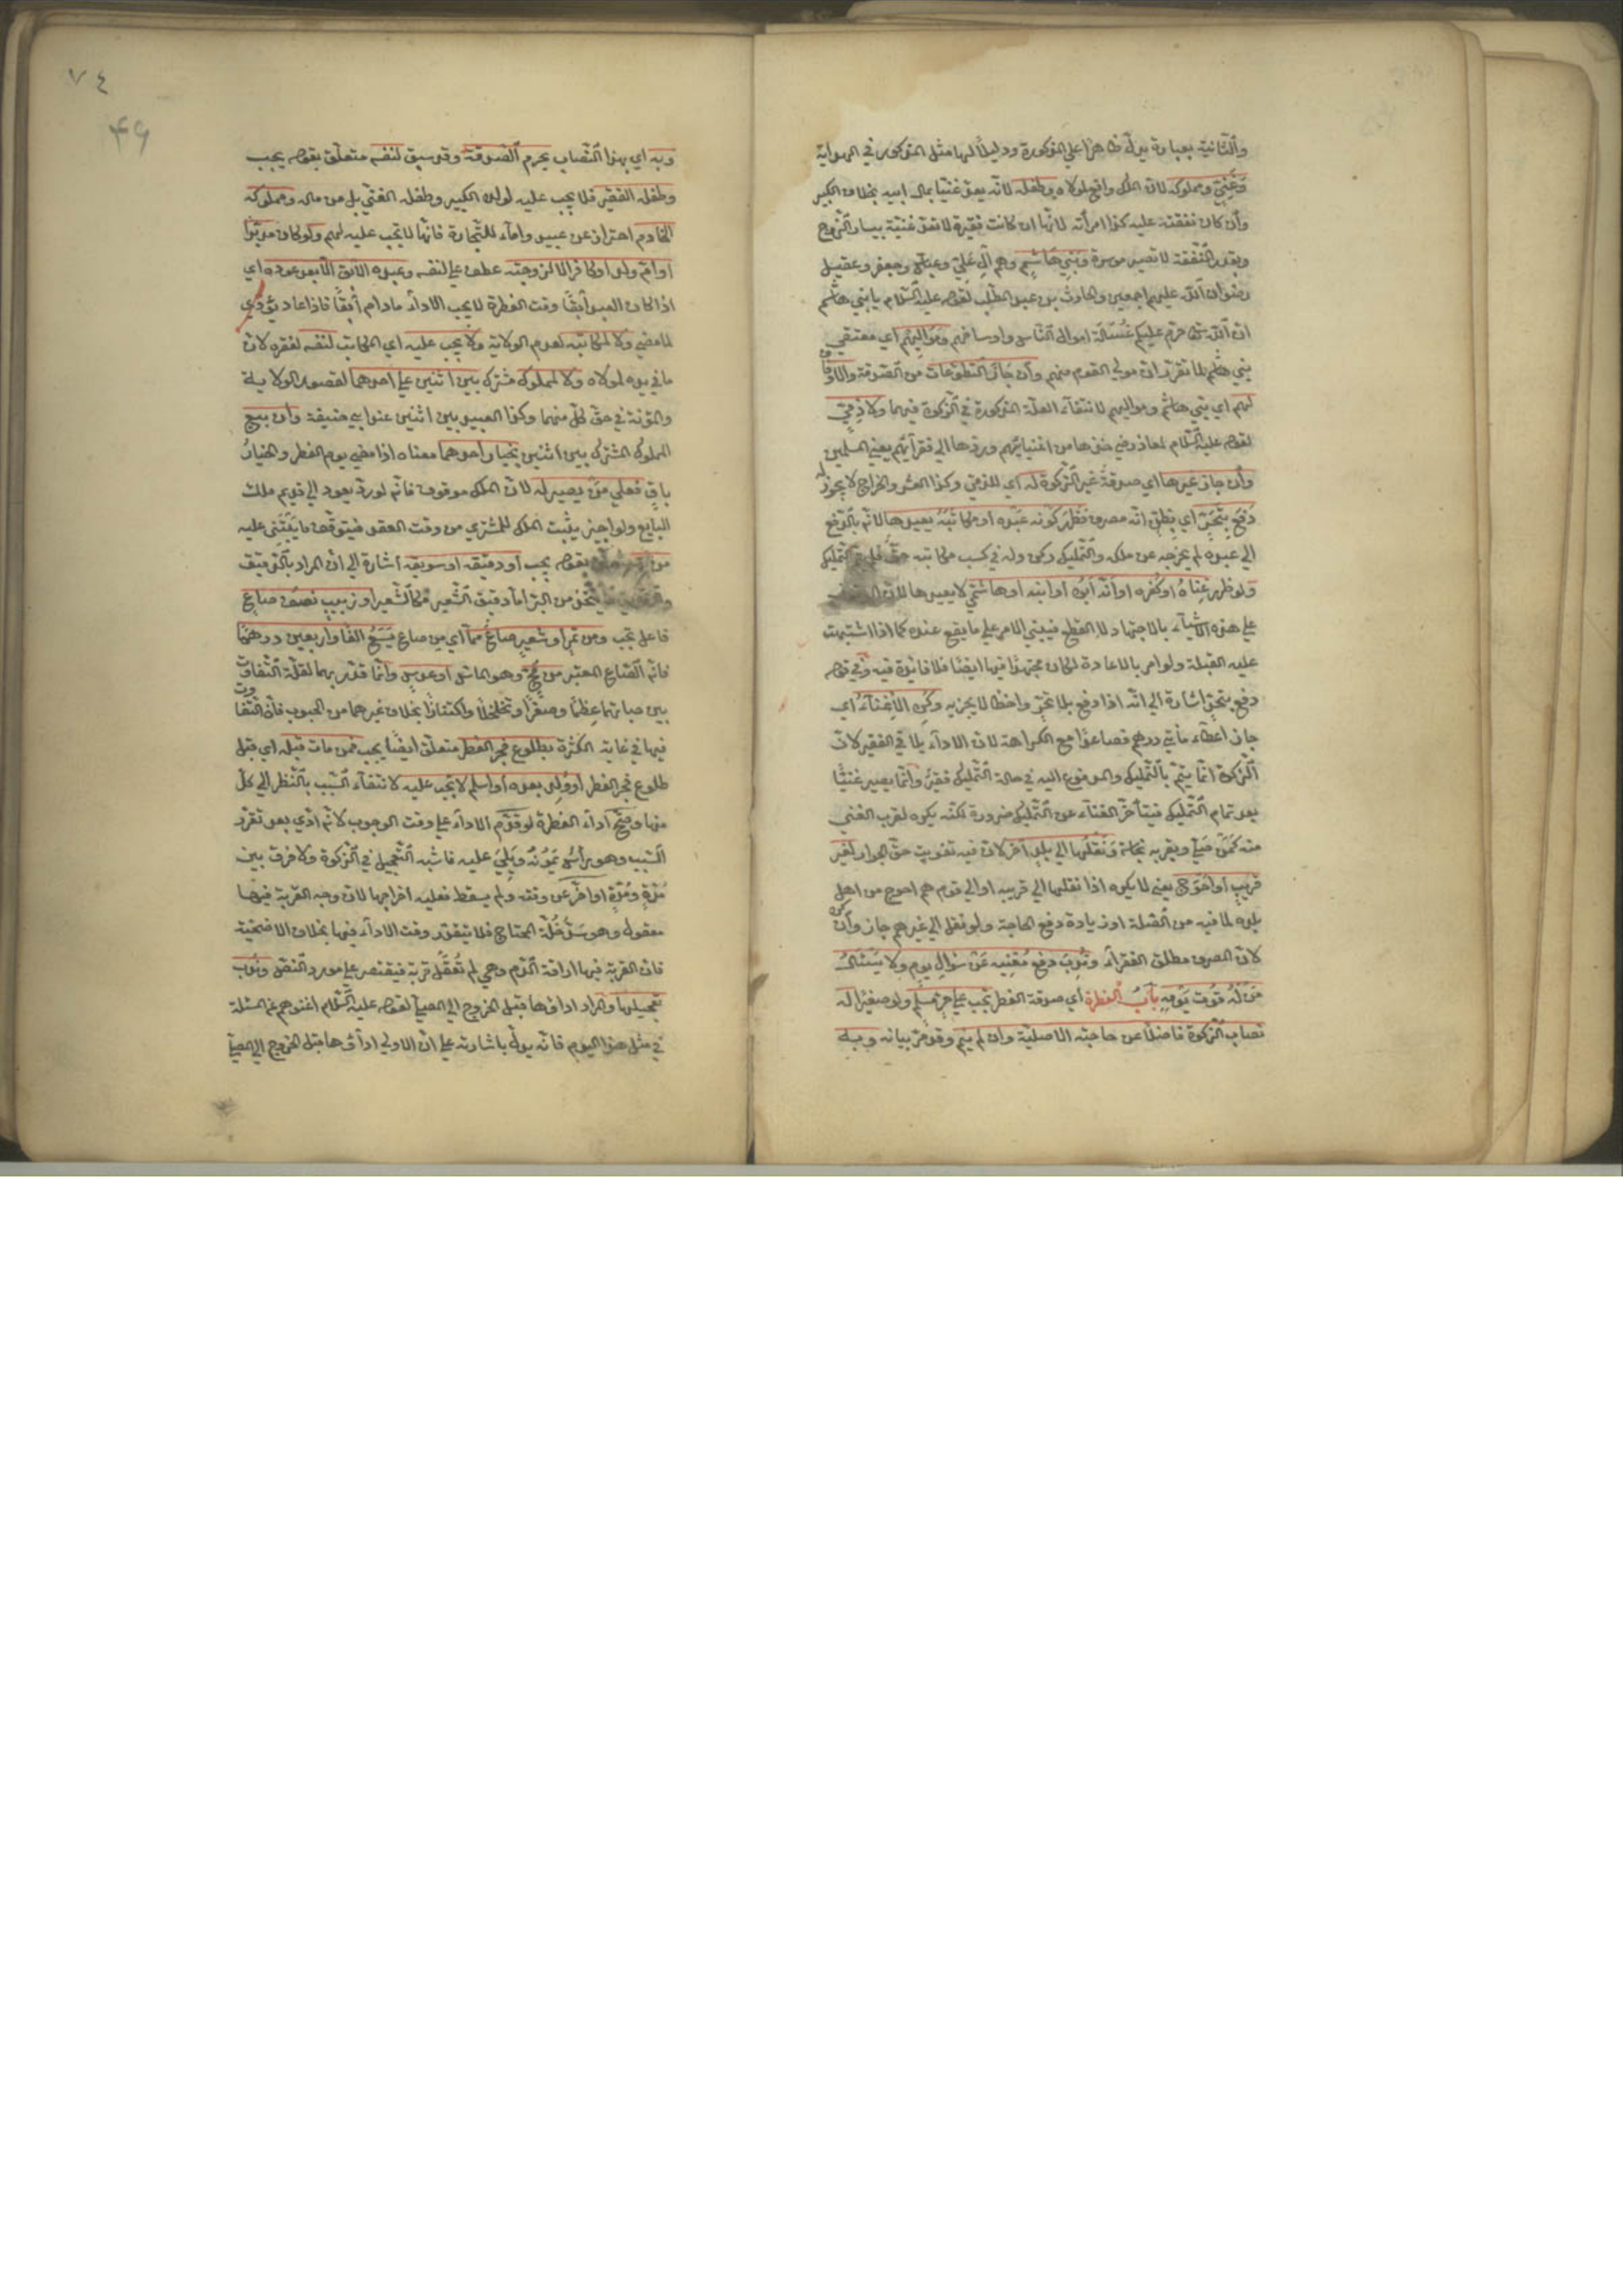 والثانية بعبارة يدل ظاهرا على المذكورة ودليلا لها مثل المذكور في الهداية
وغني ومملوكه لان الملك واقع لمولاه وطفله لانه يعد غنيا بمال ابيه بخلاف الكبير
وان كان نفقته عليه كذا امرأته لانها ان كانت فقيرة لا تعد غنية بيسار الزوج
وبقدر النفقة لا تصير موسرة وبني هاشم وهم آل علي وعباس وجعفر وعقيل
رضوان الله عليهم اجمعين والحارث بن عبد المطلب لقوله عليه السلام يا بني هاشم
ان الله تعالى حرم عليكم غسالة اموال الناس واوساخهم ومواليهم اي معتقي
بني هاشم لما تقرر ان مولى القوم منهم وان جاز التطوعات من الصدقة والاوقاف
لهم اي بني هاشم ومواليهم لانتفاء العلة المذكورة في الزكوة فيهما ولا ذمي
لقوله عليه السلام لمعاذ رضي خذها من اغنيائهم وردها الى فقرائهم يعني المسلمين
وان جاز غيرها اي صدقة غير الزكوة له اي للذمي وكذا العشر والخراج لا يجوز له
دفع بتحر اي بظن انه مصرف فظهر كونه عبده او مكاتبه يعيدها لانه بالدفع
الى عبده لم يخرجه عن ملكه والتمليك ركن وله في كسب مكاتبه حق فلم يتم التمليك
ولو ظهر غناه او كفره او انه ابوه او ابنه او هاشمي لا يعيدها لان
على هذه الاشياء بالاجتهاد لا القطع فيبتني الامر على ما يقع عنده كما اذا اشتبهت
عليه القبلة ولو امر بالاعادة لكان مجتهدا فيها ايضا فلا فائدة فيه وفي قوله
دفع بتحر اشارة الى انه اذا دفع بلا تحر واخطأ لا يجزيه وكره الاغناء اي
جاز اعطاء مأتي درهم فصاعدا مع الكراهة لان الاداء يلاقي الفقير لان
الزكوة انما يتم بالتمليك والمدفوع اليه في حالة التمليك فقير وانما يصير غنيا
بعد تمام التمليك فيتأخر الغناء عن التمليك ضرورة لكنه يكره لقرب الغني
منه كمن صلى وبقربه نجاسة ونقلها الى بلد آخر لان فيه تفويت حق الجوار لغير
قريب او احوج يعني لا يكره اذا نقلها الى قريبه او الى قوم هم احوج من اهل
بلده لما فيه من الصلة او زيادة دفع الحاجة ولو نقل الى غيرهم جاز وان كره
لان المصرف مطلق الفقراء وندب دفع مغنيه عن سؤال يوم ولا يسئال
من له قوت يومه باب الفطرة اي صدقة الفطر تجب على حر مسلم ولو صغيرا له
نصاب الزكوة فاضلا عن حاجته الاصلية وان لم ينم وقد مر بيانه وبه
٧٤
٤٩
وبه اي بهذا النصاب يحرم الصدقة وقد سبق لنفسه متعلق بقوله يجب
وطفله الفقير فلا يجب عليه لولده الكبير وطفله الغني بل من ماله ومملوكه
الخادم احتراز عن عبيد واماء للتجارة فانها لا تجب عليه لهم ولو كان مدبرا
او ام ولد او كافرا لا لزوجته عطف على لنفسه وعبده الآبق الا بعد عوده اي
اذا كان العبد آبقا وقت الفطرة لا يجب الاداء ما دام آبقا فاذا عاد يؤدي
لما مضى ولا لمكاتبه لعدم الولاية ولا يجب عليه اي المكاتب لنفسه لفقره لان
ما في يده لمولاه ولا لمملوك مشترك بين اثنين على احدهما لقصور الولاية
والمؤنة في حق كل منهما وكذا العبيد بين اثنين عند ابي حنيفة وان بيع
المملوك المشترك بين اثنين بخيار احدهما معناه اذا مضى يوم الفطر والخيار
باق فعلى من يصير له لان الملك موقوف فانه لو رد يعود الى قديم ملك
البايع ولو اجيز يثبت الملك للمشتري من وقت العقد فيتوقف ما يبتنى عليه
من بر متعلق بقوله يجب او دقيقه او سويقه اشارة الى ان المراد بالدقيق
والسويق ما يتخذ من البر اما دقيق الشعير فكالشعير او زبيب نصف صاع
فاعل تجب ومن تمر او شعير صاع مما اي من صاع يسع الفا واربعين درهما
فانه الصاع المعتبر من مج وهو الماش او عدس وانما قدر بهما لقلة التفاوت
بين حباتهما عظما وصغرا وتخلخلا واكتنازا بخلاف غيرهما من الحبوب فان التفاوت
فيها في غاية الكثرة بطلوع فجر الفطر متعلق ايضا يجب فمن مات قبله اي قبل
طلوع فجر الفطر او ولد بعده او اسلم لا تجب عليه لانتفاء السبب بالنظر الى كل
منها وصح اداء الفطرة لو قدم الاداء على وقت الوجوب لانه ادى بعد تقرر
السبب وهو رأس يمونه ويلي عليه فاشبه التعجيل في الزكوة ولا فرق بين
مدة ومدة او اخر عن وقته ولم يسقط فعليه اخراجها لان وجه القربة فيها
معقول وهو سد خلة المحتاج فلا يتقدر وقت الاداء فيها بخلاف الاضحية
فان القربة فيها اراقة الدم وهي لم تعقل قربة فيقتصر على مورد النص وندب
تعجيلها والمراد اداؤها قبل الخروج الى المصلى لقوله عليه السلام اغنوهم عن المسئلة
في مثل هذا اليوم فانه يدل باشارته على ان الاولى اداؤها قبل الخروج الى المصلى